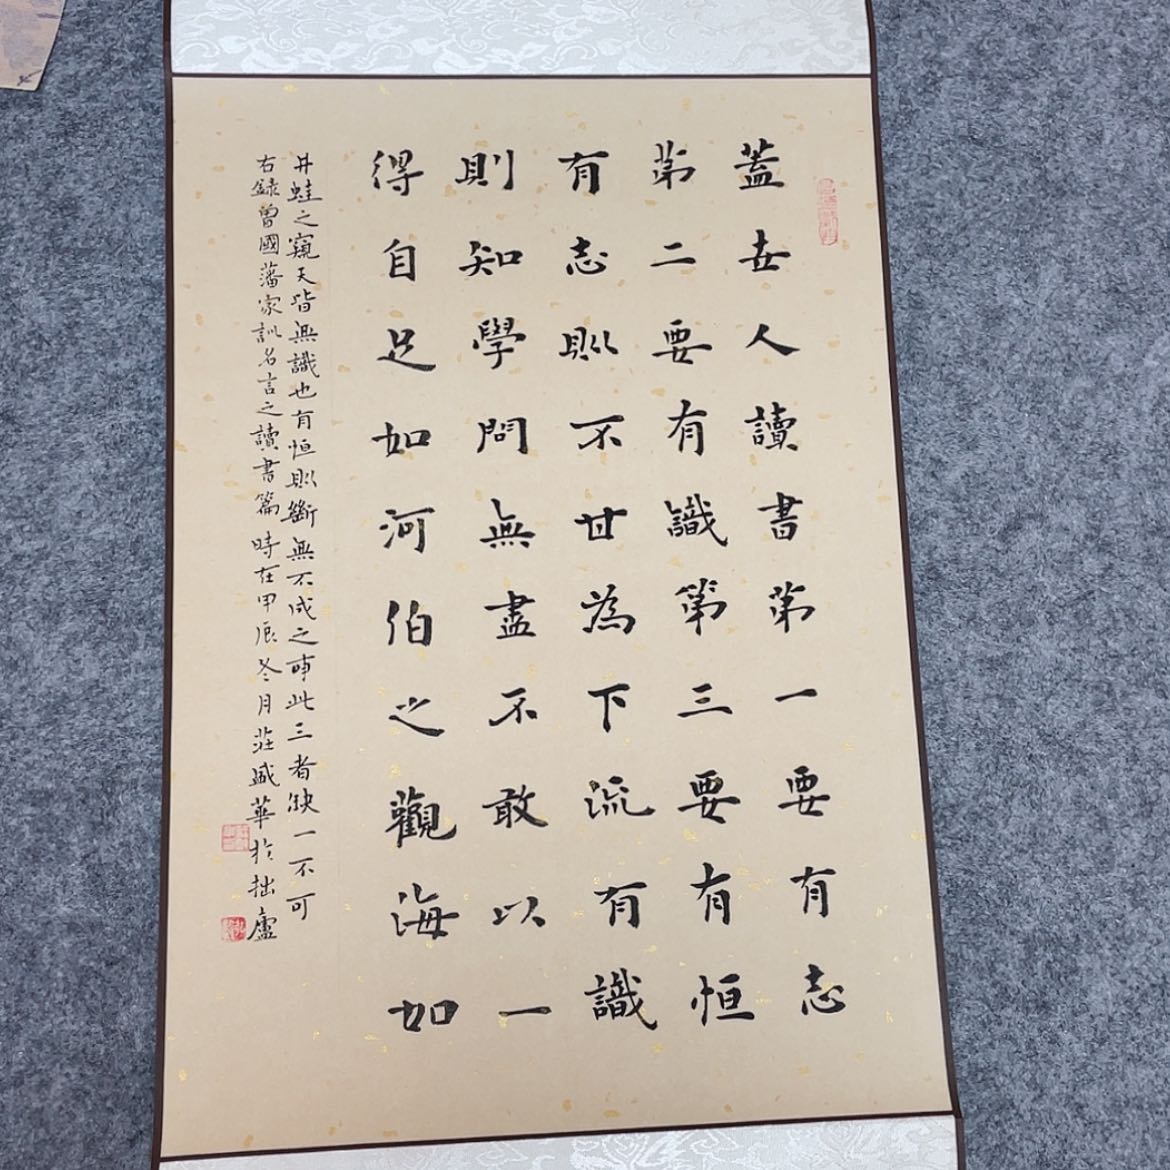 蓋世人讀書第一要有志
第二要有識第三要有恒
有志則不甘為下流有識
則知學問無盡不敢以一
得自足如河伯之觀海如
井蛙之窺天皆無識也有恒則斷無不成之事此三者缺一不可
右錄曾國藩家訓名言之讀書篇時在甲辰冬月莊盛華於拙廬